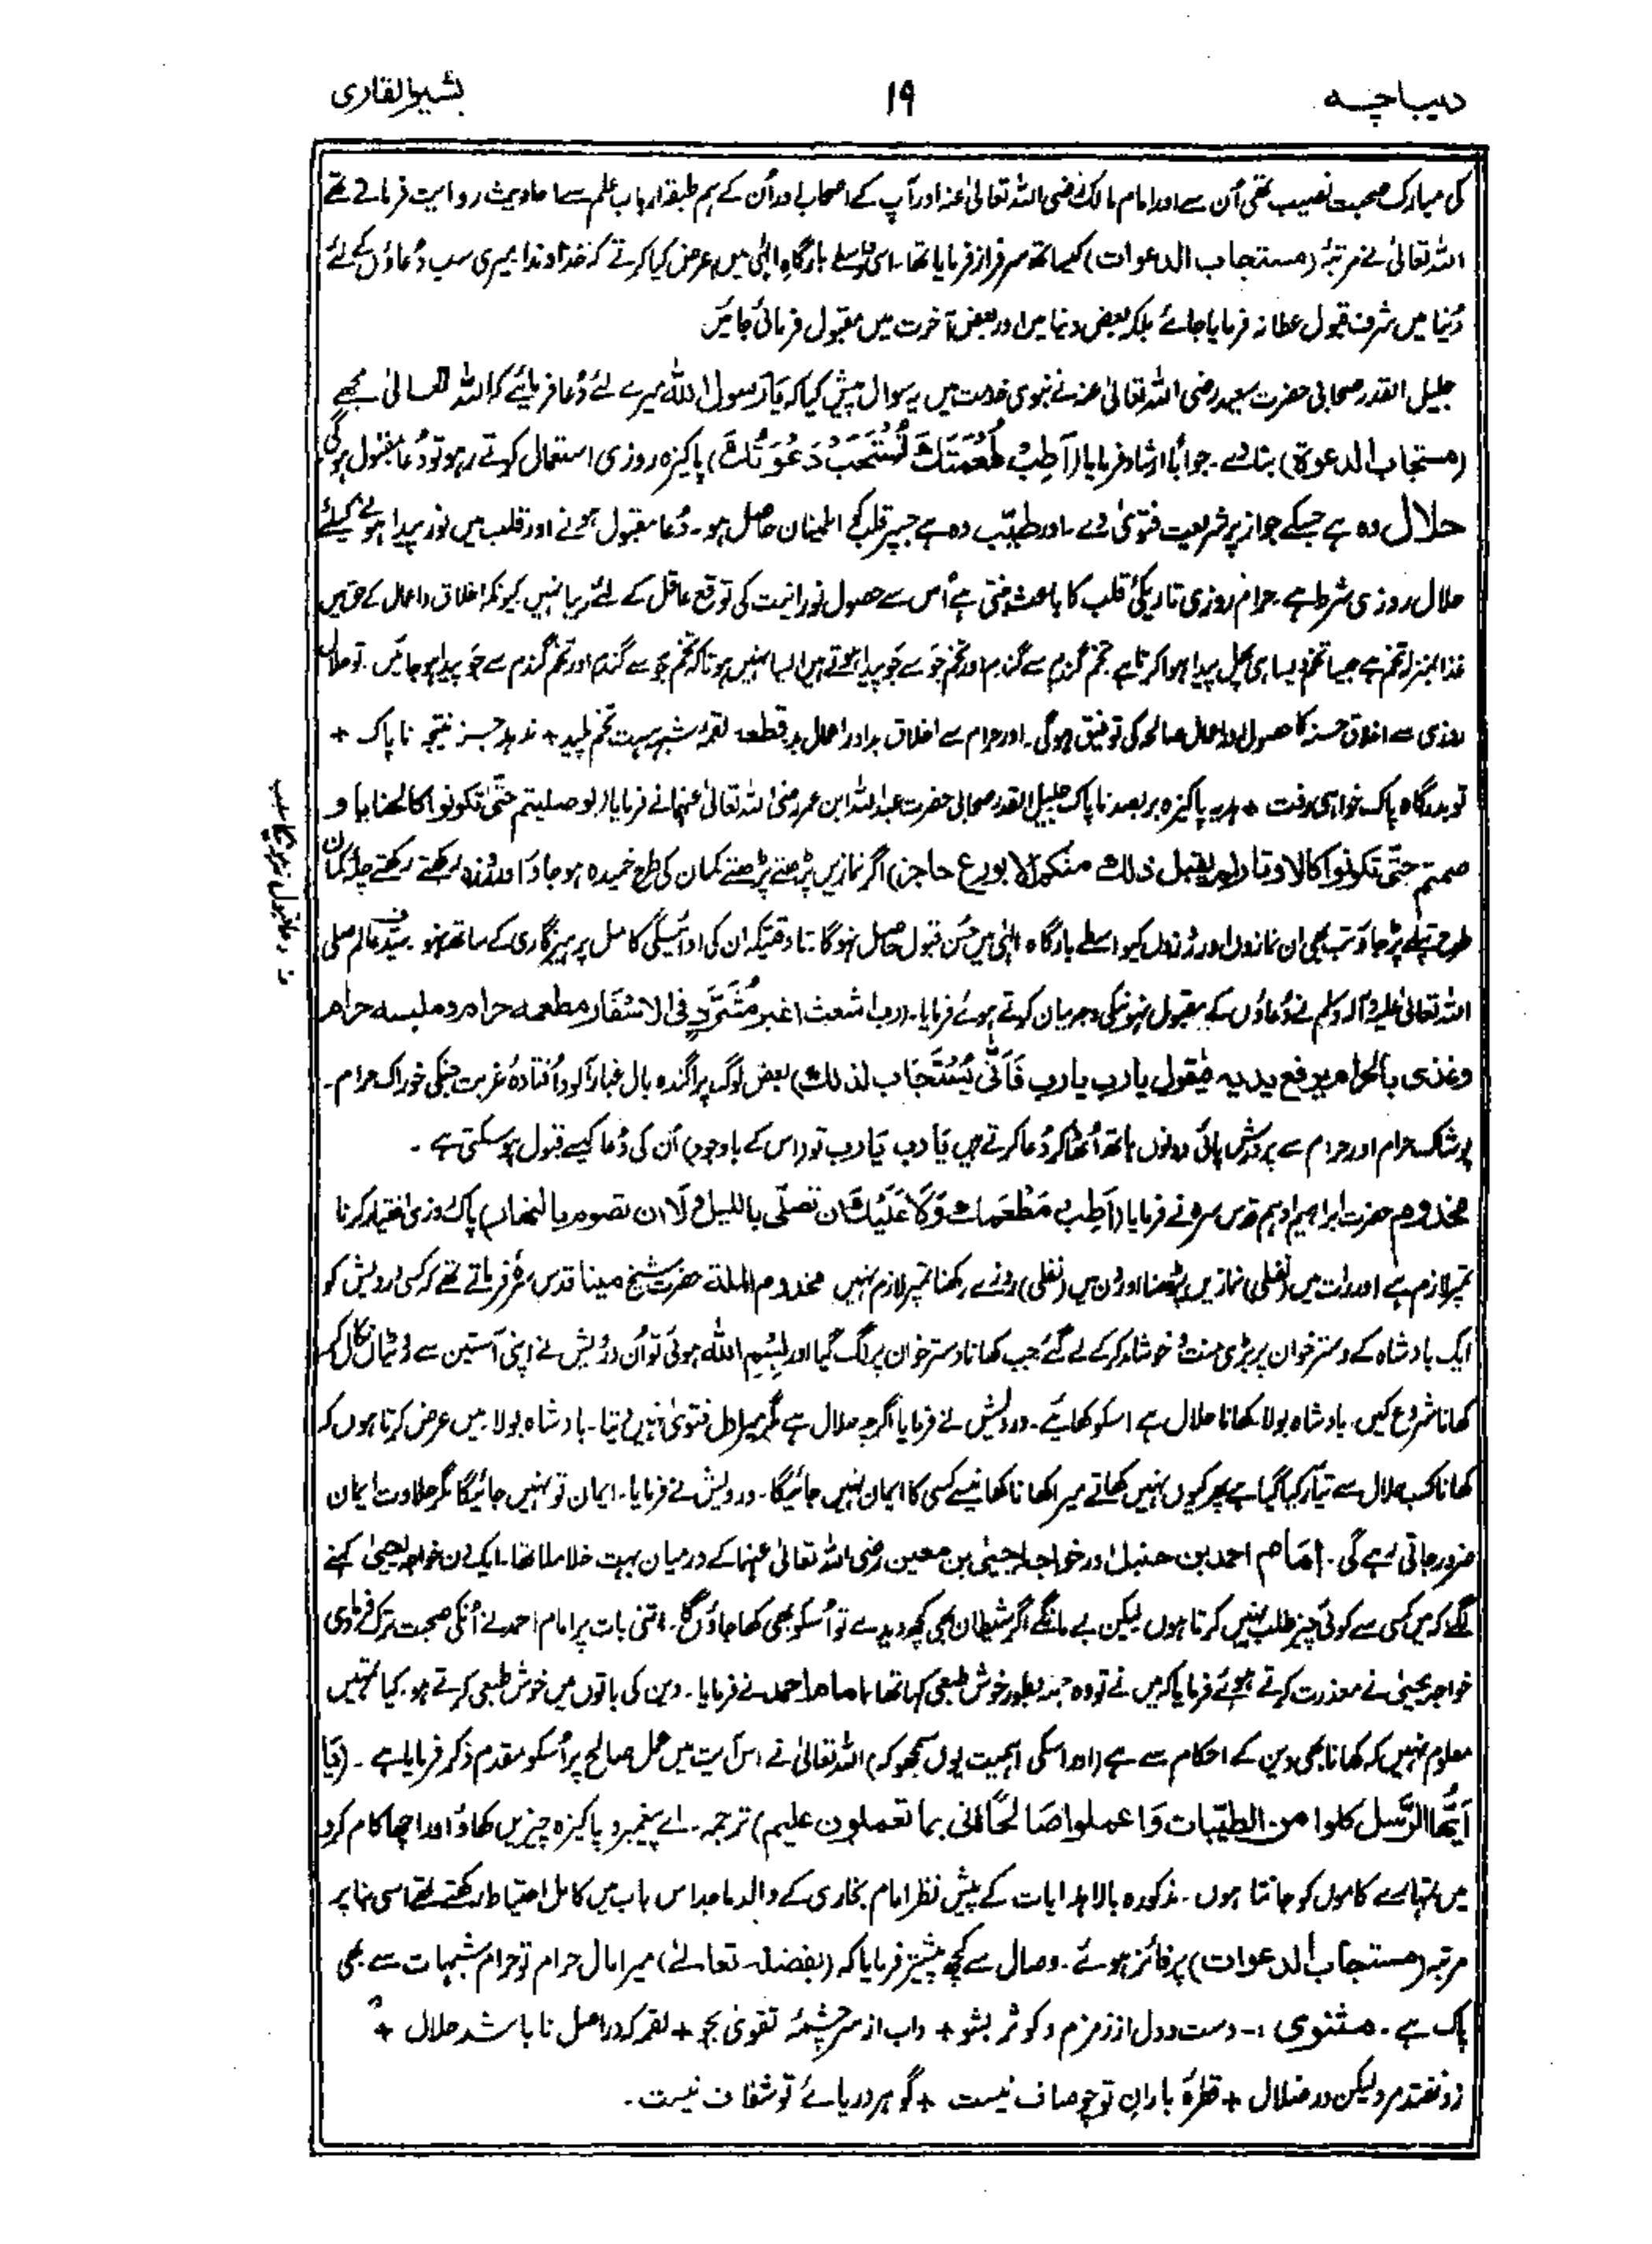 دیباچہ
١٩
بشیرالقاری
کی مبارک صحبت نصیب تھی اُن سے اور امام مالک رضی اللہ تعالیٰ عنہ اور آپ کے اصحاب اور اُن کے ہم طبقہ ارباب علم سے احادیث روایت فرماتے تھے
اللہ تعالیٰ نے مرتبۂ (مستجاب الدعوات) کیساتھ سرفراز فرمایا تھا۔ اسی واسطے بارگاہِ الٰہی میں عرض کیا کرتے کہ خداوندا میری سب دُعاؤں کے لئے
دُنیا میں شرف قبول عطا نہ فرمایا جائے بلکہ بعض دنیا میں اور بعض آخرت میں مقبول فرمائی جائیں
جلیل القدر صحابی حضرت سعید رضی اللہ تعالیٰ عنہ نے نبوی خدمت میں یہ سوال پیش کیا کہ یَا رسول اللہ میرے لئے دُعا فرمائیے کہ اللہ تعالیٰ مجھے
(مستجاب الدعوۃ) بنا دے۔ جواباً ارشاد فرمایا (اَطِبْ طُعْمَتَكَ تُسْتَجَبْ دَعْوَتُكَ) پاکیزہ روزی استعمال کرتے رہو تو دُعا مقبول ہوگی
حلال وہ ہے جسکے جواز پر شریعت فتویٰ دے۔ اور طیّب وہ ہے جسپر قلب کو اطمینان حاصل ہو۔ دُعا مقبول ہونے اور قلب میں نور پیدا ہونے کیلئے
حلال روزی شرط ہے۔ حرام روزی تاریکیٔ قلب کا باعث بنتی ہے اُس سے حصول نورانیت کی توقع عاقل کے لئے زیبا نہیں کیونکہ اخلاق و اعمال کے حق میں
غذا بمنزلہ تخم ہے جیسا تخم ویسا ہی پھل پیدا ہوا کرتا ہے تخم گندم سے گندم اور تخم جَو سے جَو پیدا ہوتے ہیں ایسا نہیں ہوتا کہ تخم جو سے گندم اور تخم گندم سے جَو پیدا ہو جائیں۔ تو حلال
روزی سے اخلاق حسنہ کا حصول اور اعمال صالحہ کی توفیق ہوگی۔ اور حرام سے اخلاق بد اور اعمال بد قطعہ لقمۂ شبہہ ہست تخم پلید + ندہد جز نتیجہ ناپاک +
تو بدرگاہ پاک خواہی رفت + ہدیہ پاکیزہ بر بصد ناپاک جلیل القدر صحابی حضرت عبداللہ ابن عمر رضی اللہ تعالیٰ عنہما نے فرمایا (لو صلیتم حتّٰی تکونوا کالحنایا و
صمتم حتّٰی تکونوا کالاوتار لم یقبل ذلك منکم الا بورع حاجز) اگر نمازیں پڑھتے پڑھتے کمان کی طرح خمیدہ ہو جاؤ اور روزے رکھتے رکھتے چلۂ کمان
طرح پتلے پڑ جاؤ تب بھی ان نمازوں اور روزوں کیواسطے بارگاہ الٰہی میں حُسن قبول حاصل نہوگا۔ تاوقتیکہ ان کی ادائیگی کامل پرہیزگاری کے ساتھ نہو۔ سیّد عالم صلی
اللہ تعالیٰ علیہ وآلہ وسلم نے دُعاؤں کے مقبول نہونیکی وجہ بیان کرتے ہوئے فرمایا۔ (رب اشعث اغبر مُشَرَّدٍ فی الاسفار مطعمہ حرام وملبسہ حرام
وغذی بالحرام یرفع یدیہ فیقول یارب یارب فَاَنّٰی یُسْتَجَاب لذلك) بعض لوگ پراگندہ بال غبارآلود اُفتادۂ غربت جنکی خوراک حرام۔
پوشاک حرام اور حرام سے پرورش پائی دونوں ہاتھ اُٹھا کر دُعا کرتے ہیں یَا رب یَا رب تو (اس کے باوجود) اُن کی دُعا کیسے قبول ہو سکتی ہے۔
مخدوم حضرت ابراہیم ادہم قدس سرہ نے فرمایا (اَطِب مَطْعَمَك وَلَا عَلَیْكَ اَن تصلّی باللیل وَلَا ان تصوم بالنھار) پاک روزی اختیار کرنا
تمپر لازم ہے اور رات میں (نفلی) نمازیں پڑھنا اور دن میں (نفلی) روزے رکھنا تمپر لازم نہیں مخدوم الملۃ حضرت شیخ مینا قدس سرہٗ فرماتے تھے کہ کسی درویش کو
ایک بادشاہ کے دسترخوان پر بڑی منت و خوشامد کرکے لے گئے جب کھانا دسترخوان پر لگ گیا اور بِسْمِ اللہ ہوئی تو اُن درویش نے اپنی آستین سے روٹیاں نکال کر
کھانا شروع کیں۔ بادشاہ بولا کھانا حلال ہے اسکو کھائیے۔ درویش نے فرمایا اگرچہ حلال ہے مگر میرا دل فتویٰ نہیں دیتا۔ بادشاہ بولا میں عرض کرتا ہوں کہ
کھانا کسب حلال سے تیار کیا گیا ہے پھر کیوں نہیں کھاتے میرا کھانا کھانیسے کسی کا ایمان نہیں جائیگا۔ درویش نے فرمایا۔ ایمان تو نہیں جائیگا مگر حلاوت ایمان
ضرور جاتی رہے گی۔ اِمَام احمد بن حنبل اور خواجہ یحییٰ بن معین رضی اللہ تعالیٰ عنہما کے درمیان بہت خلاملا تھا۔ ایک دن خواجہ یحییٰ کہنے
لگے کہ میں کسی سے کوئی چیز طلب نہیں کرتا ہوں لیکن بے مانگے اگر شیطان بھی کچھ دیدے تو اُسکو بھی کھا جاؤں گا۔ اتنی بات پر امام احمد نے اُنکی صحبت ترک فرما دی
خواجہ یحییٰ نے معذرت کرتے ہوئے فرمایا کہ میں نے تو وہ جملہ بطور خوش طبعی کہا تھا۔ امام احمد نے فرمایا۔ دین کی باتوں میں خوش طبعی کرتے ہو۔ کیا تمہیں
معلوم نہیں کہ کھانا بھی دین کے احکام سے ہے (اور اسکی اہمیت یوں سمجھو کہ) اللہ تعالیٰ نے اس آیت میں عمل صالح پر اُسکو مقدم ذکر فرمایا ہے۔ (یَا
اَیُّھَا الرُّسل کلوا من الطیّبات وَاعملوا صَالحًا انی بما تعملون علیم) ترجمہ۔ اے پیغمبرو پاکیزہ چیزیں کھاؤ اور اچھا کام کرو
میں تمہارے کاموں کو جانتا ہوں۔ مذکورہ بالا ہدایات کے پیش نظر امام بخاری کے والد ماجد اس باب میں کامل احتیاط رکھتے تھے اسی بنا پر
مرتبہ (مستجاب الدعوات) پر فائز ہوئے۔ وصال سے کچھ پیشتر فرمایا کہ (بفضلہ تعالےٰ) میرا مال حرام تو حرام شبہات سے بھی
پاک ہے۔ مثنوی :- دست و دل از زمزم و کوثر بشو + داب از سرچشمۂ تقویٰ بجو + لقمہ کہ دراصل نا باشد حلال +
زو نفتد مرد لیکن در ضلال + قطرۂ باران تو چو صاف نیست + گوہر دریائے تو شفاف نیست۔